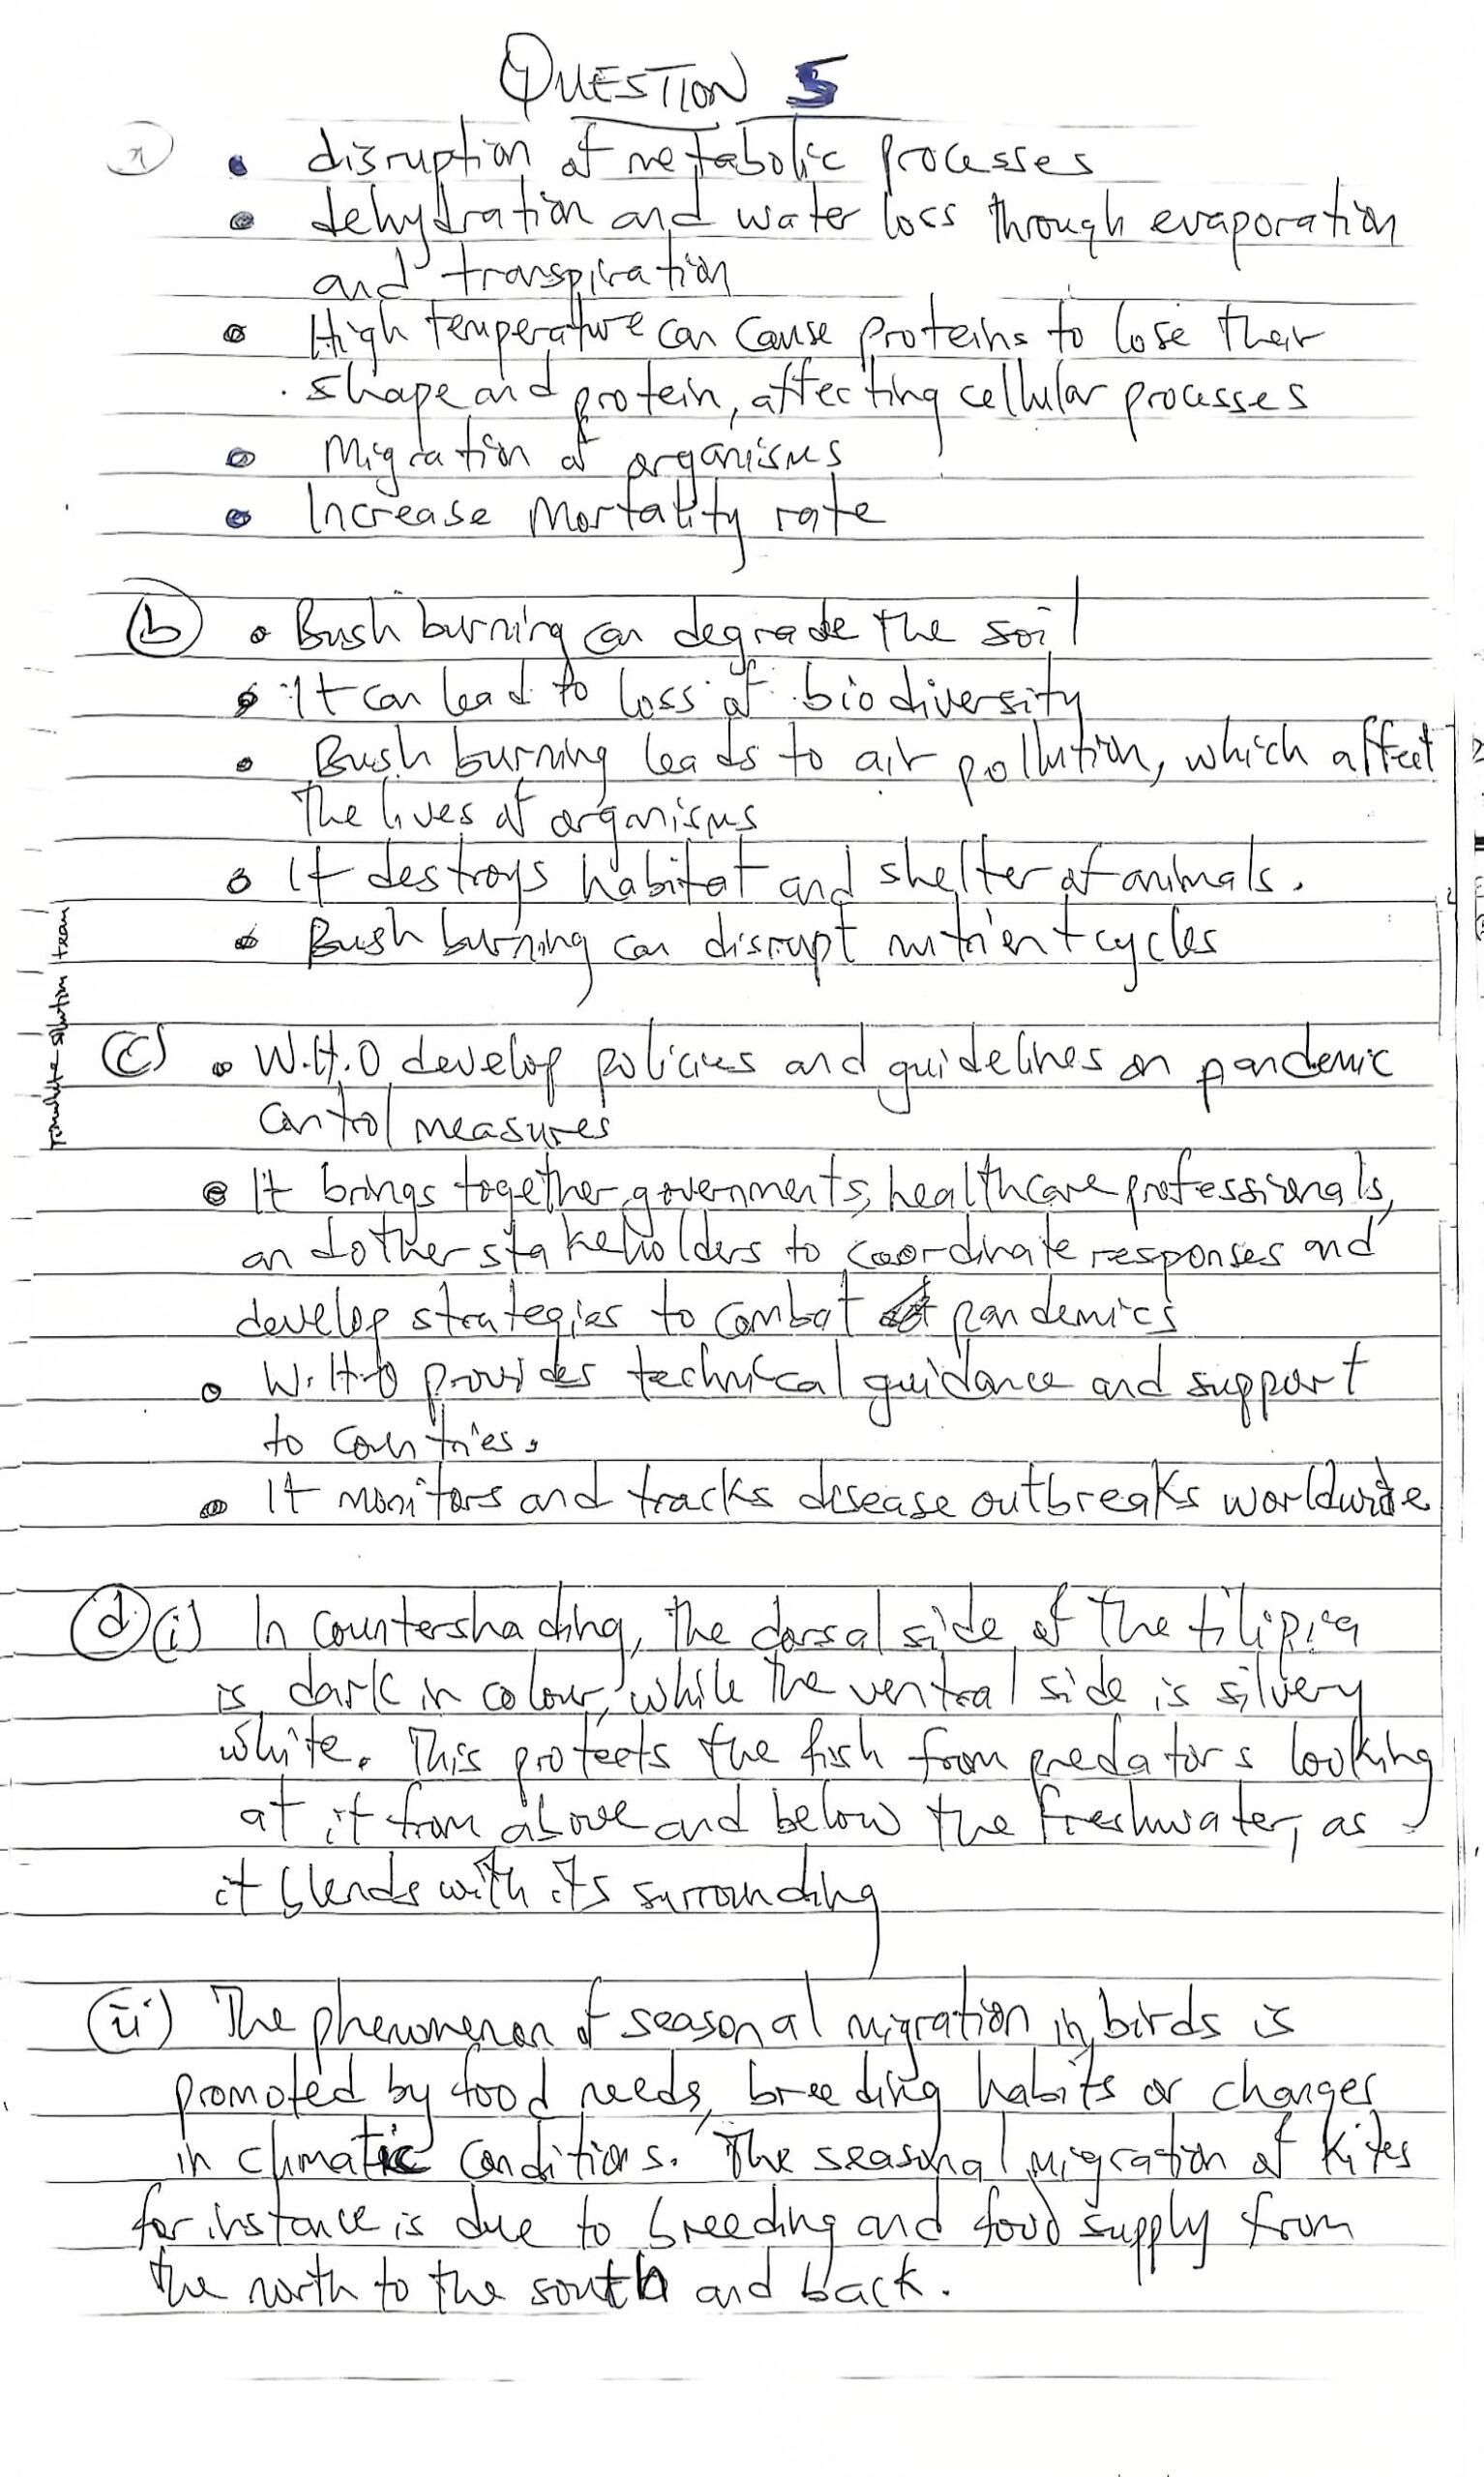 QUESTION 5
a • disruption of metabolic processes
• dehydration and water loss through evaporation
and transpiration
• High temperature can cause proteins to lose their
shape and protein, affecting cellular processes
• Migration of organisms
• Increase Mortality rate
(b) • Bush burning can degrade the soil
• It can lead to loss of biodiversity
• Bush burning leads to air pollution, which affect
the lives of organisms
• It destroys habitat and shelter of animals.
• Bush burning can disrupt nutrient cycles
(c) • W.H.O develop policies and guidelines on pandemic
control measures
• It brings together governments, healthcare professionals,
and other stakeholders to coordinate responses and
develop strategies to combat pandemics
• W.H.O provides technical guidance and support
to countries.
• It monitors and tracks disease outbreaks worldwide
(d)(i) In countershading, the dorsal side of the tilipia
is dark in colour, while the ventral side is silvery
white. This protects the fish from predators looking
at it from above and below the freshwater, as
it blends with its surrounding
(ii) The phenomenon of seasonal migration in birds is
promoted by food needs, breeding habits or changes
in climatic conditions. The seasonal migration of kites
for instance is due to breeding and food supply from
the north to the south and back.
solution team